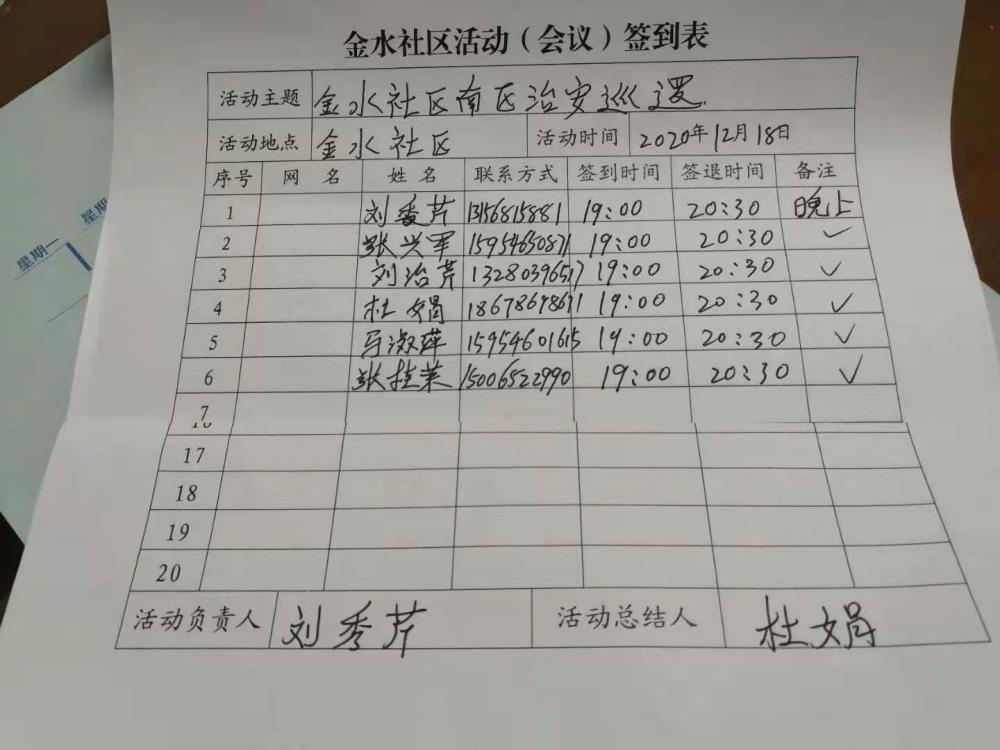 金水社区活动（会议）签到表
活动主题 金水社区南区治安巡逻.
活动地点 金水社区 活动时间 2020年12月18日
序号 网 名 姓 名 联系方式 签到时间 签退时间 备注
1 刘秀芹 13156815881 19:00 20:30 晚上
2 张兴军 15954650871 19:00 20:30 ✓
3 刘治芹 13280396517 19:00 20:30 ✓
4 杜娟 18678698671 19:00 20:30 ✓
5 马淑萍 15954601615 19:00 20:30 ✓
6 张桂荣 15006522990 19:00 20:30 ✓
7
17
18
19
20
活动负责人 刘秀芹 活动总结人 杜娟
星期一
星期